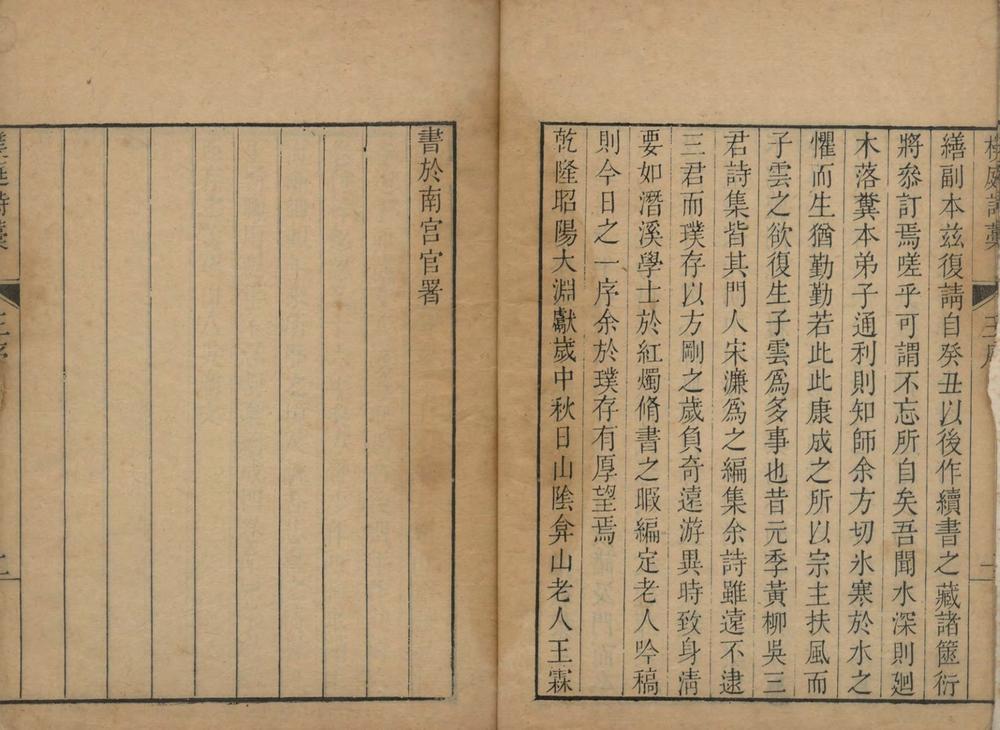 繕副本兹復請自癸丑以後作續書之藏諸篋衍
將叅訂焉嗟乎可謂不忘所自矣吾聞水深則廻
木落糞本弟子通利則知師余方切氷寒於水之
懼而生猶勤勤若此此康成之所以宗主扶風而
子雲之欲復生子雲爲多事也昔元季黃柳吳三
君詩集皆其門人宋濂爲之編集余詩雖遠不逮
三君而璞存以方剛之歲負奇遠游異時致身清
要如潛溪學士於紅燭脩書之暇編定老人吟稿
則今日之一序余於璞存有厚望焉
乾隆昭陽大淵獻歲中秋日山陰弇山老人王霖
書於南宫官署